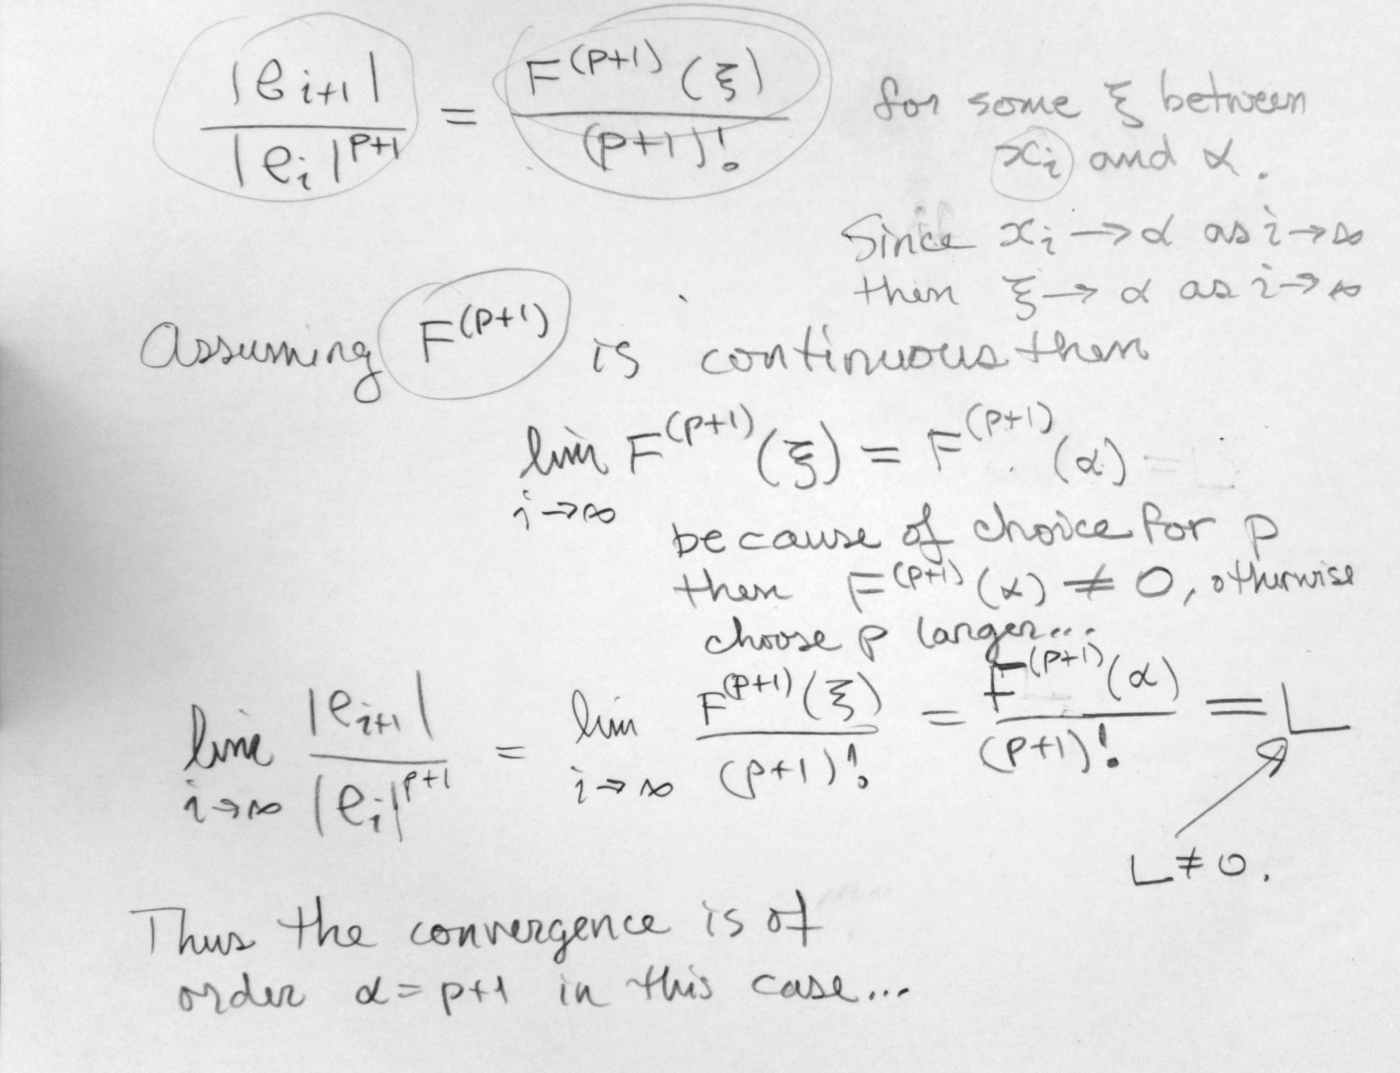 |e_{i+1}| / |e_i|^{p+1} = F^{(p+1)}(ξ) / (p+1)! for some ξ between
x_i and α.
Since x_i → α as i → ∞
then ξ → α as i → ∞
Assuming F^{(p+1)} is continuous then
lim_{i→∞} F^{(p+1)}(ξ) = F^{(p+1)}(α)
because of choice for p
then F^{(p+1)}(α) ≠ 0, otherwise
choose p larger...
lim_{i→∞} |e_{i+1}| / |e_i|^{p+1} = lim_{i→∞} F^{(p+1)}(ξ) / (p+1)! = F^{(p+1)}(α) / (p+1)! = L
L ≠ 0.
Thus the convergence is of
order α = p+1 in this case...